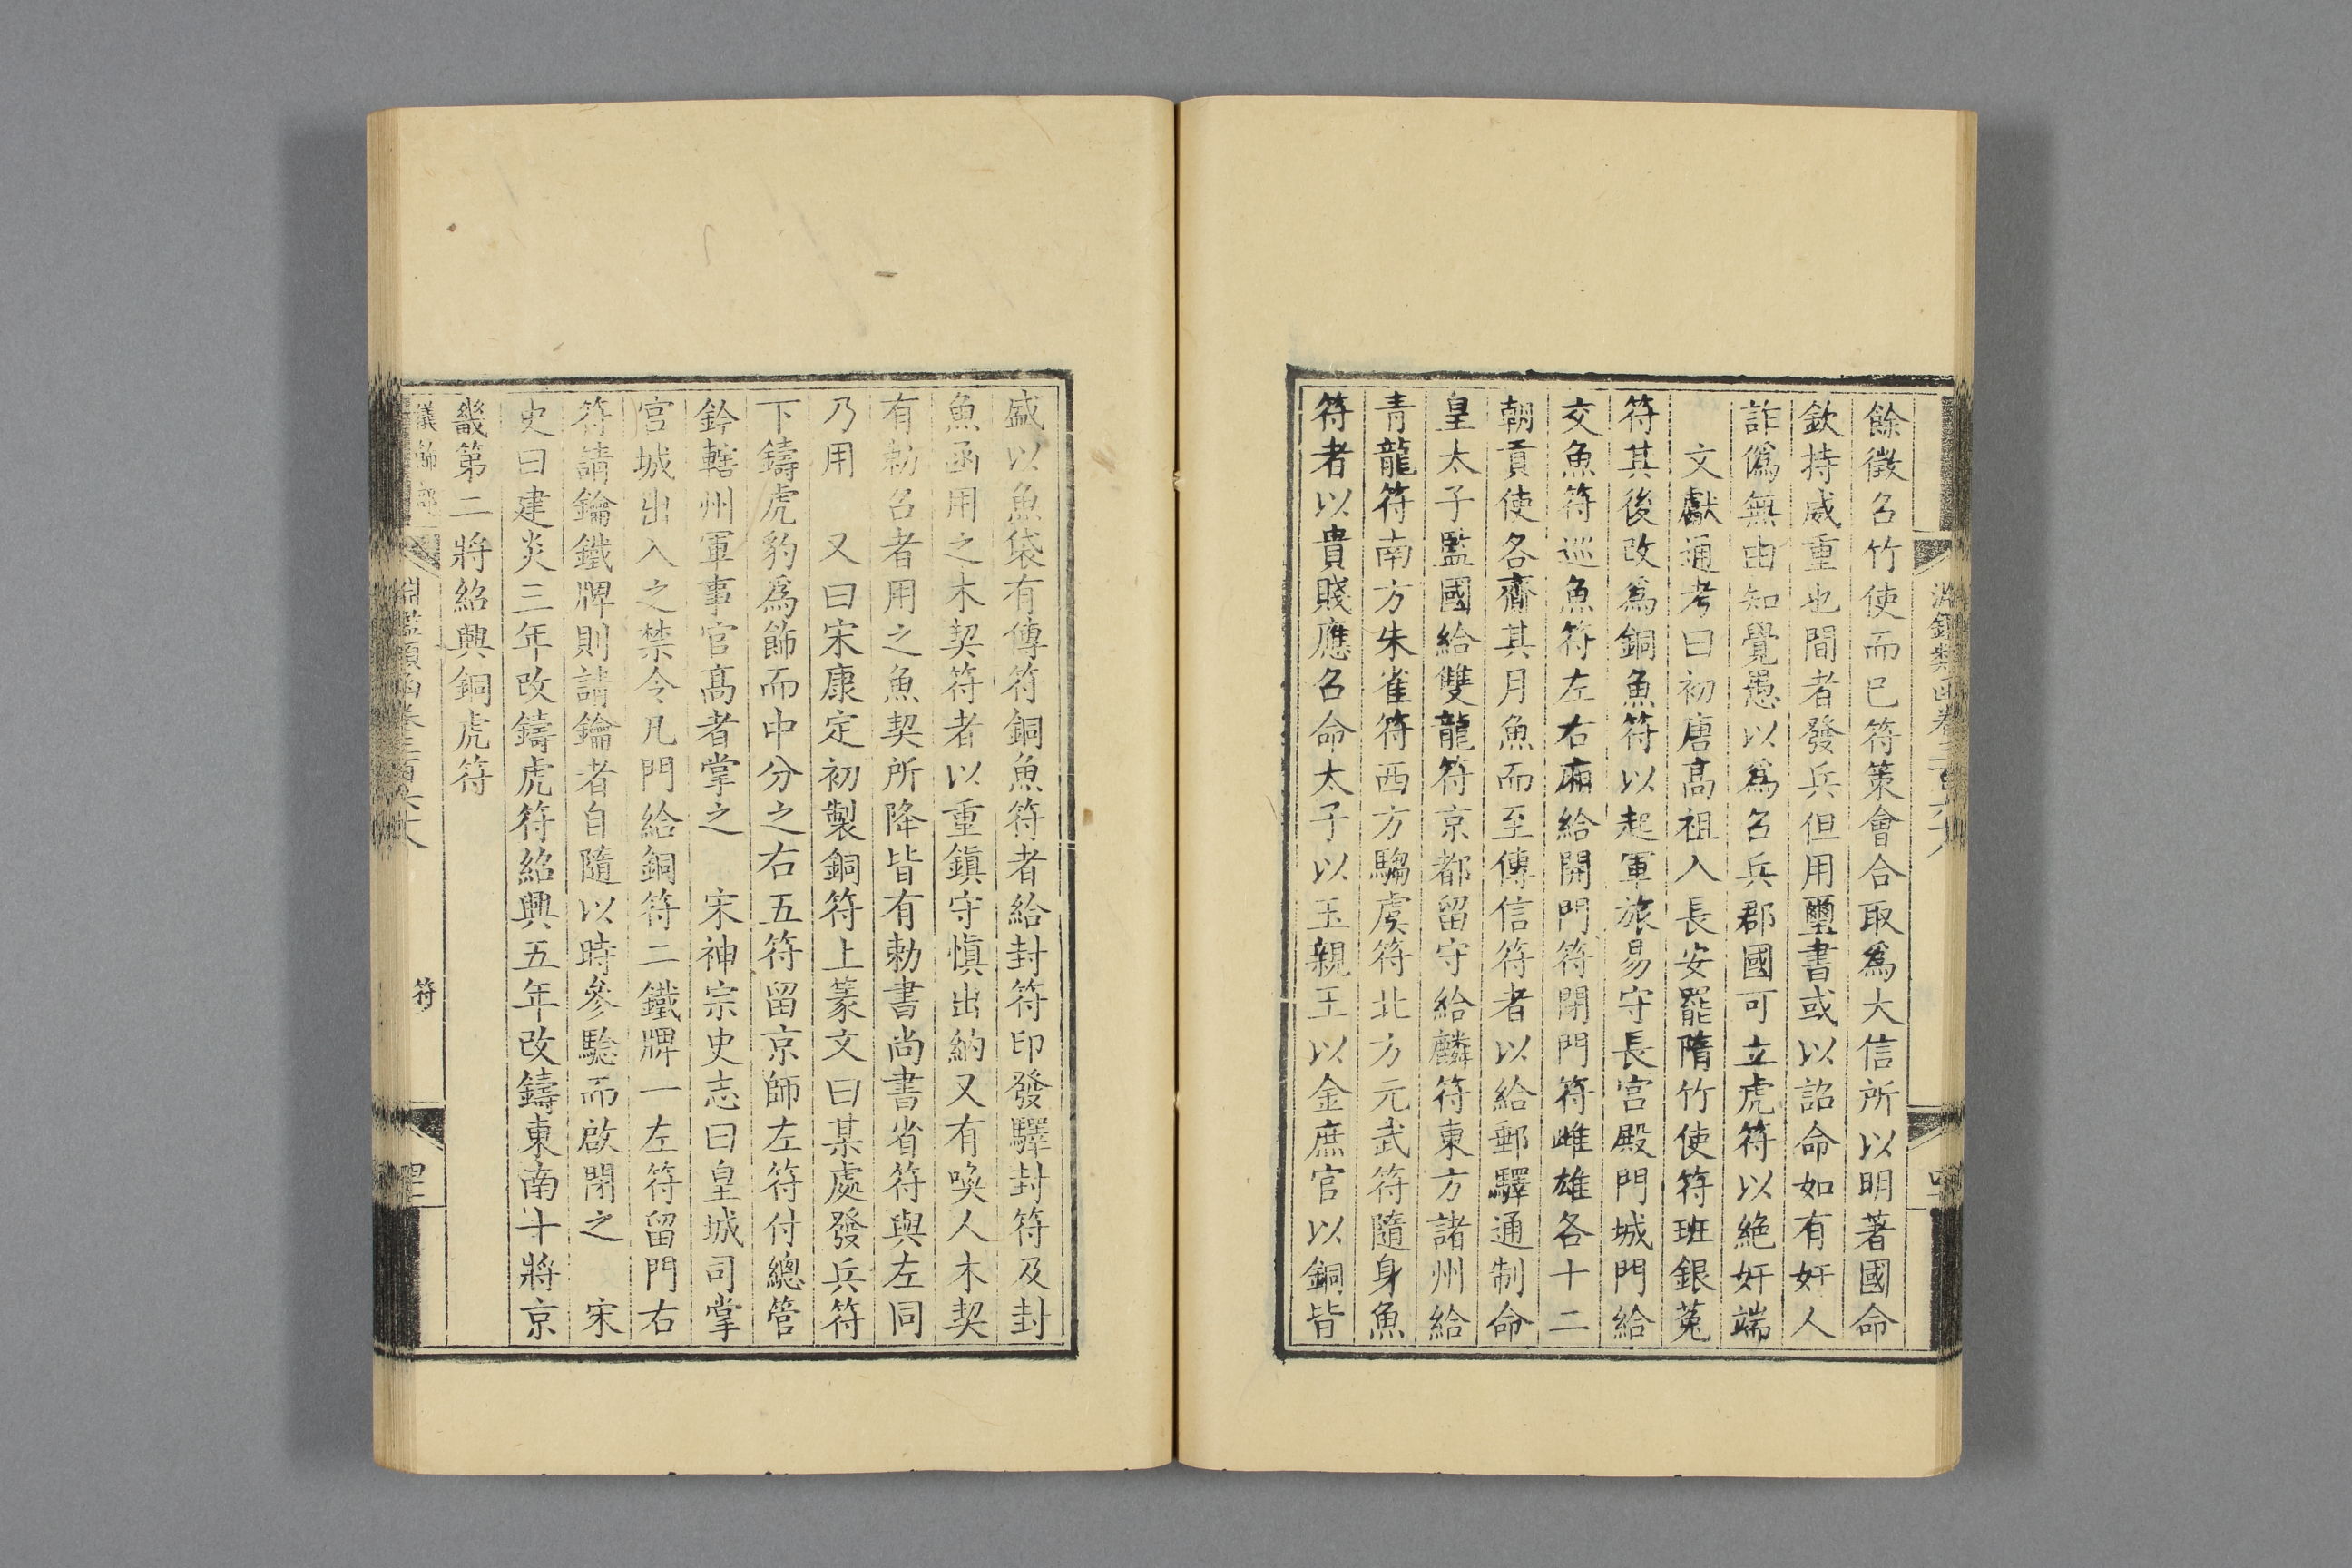 餘徵召竹使而已符策會合取爲大信所以明著國命
欽持威重也間者發兵但用璽書或以詔命如有奸人
詐僞無由知覺愚以爲召兵郡國可立虎符以絕奸端
文獻通考曰初唐高祖入長安罷隋竹使符班銀菟
符其後改爲銅魚符以起軍旅易守長宮殿門城門給
交魚符巡魚符左右廂給開門符閉門符雌雄各十二
朝貢使各齎其月魚而至傳信符者以給郵驛通制命
皇太子監國給雙龍符京都留守給麟符東方諸州給
青龍符南方朱雀符西方騶虞符北方元武符隨身魚
符者以貴賤應召命太子以玉親王以金庶官以銅皆
盛以魚袋有傳符銅魚符者給封符印發驛封符及封
魚函用之木契符者以重鎭守愼出納又有喚人木契
有勅召者用之魚契所降皆有勅書尚書省符與左同
乃用　又曰宋康定初製銅符上篆文曰某處發兵符
下鑄虎豹爲飾而中分之右五符留京師左符付總管
鈐轄州軍事官高者掌之　宋神宗史志曰皇城司掌
宮城出入之禁今凡門給銅符二鐵牌一左符留門右
符請鑰鐵牌則請鑰者自隨以時參驗而啟閉之　宋
史曰建炎三年改鑄虎符紹興五年改鑄東南十將京
畿第二將紹興銅虎符
儀飾部
淵鑑類函卷三百六十八
符